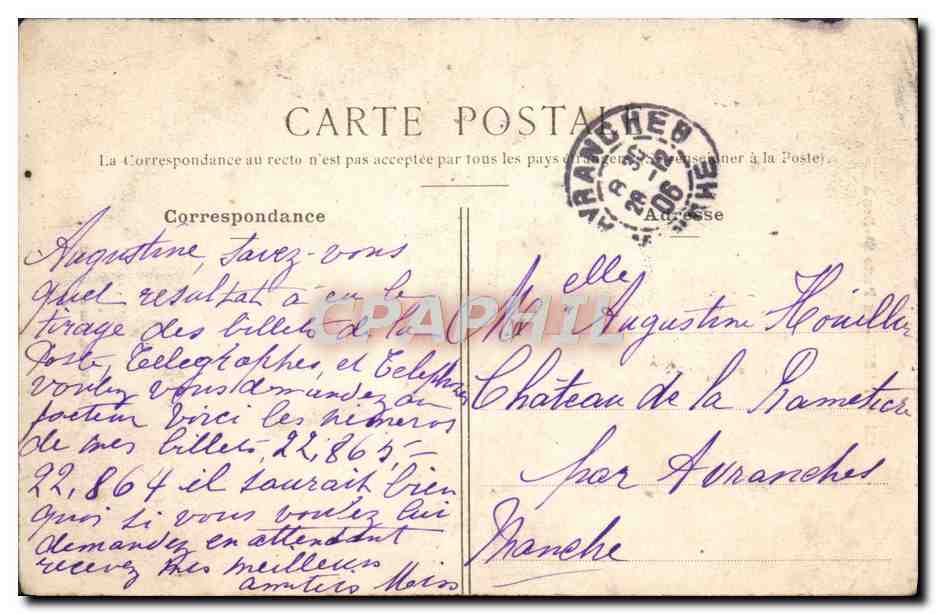 CARTE POSTALE
La Correspondance au recto n'est pas acceptée par tous les pays étrangers (Se renseigner à la Poste).
AVRANCHES
28 12 06
MANCHE
Correspondance
Augustine, Savez-vous
quel resultat à eu le
tirage des billets de la
Poste, Telegraphes, et Telephones
voulez vous demandez au
facteur voici les numeros
de mes billets, 22,865,-
22,864 il saurait bien
quoi si vous voulez lui
demandez en attendant
recevez mes meilleurs
amitiés
Adresse
Melle Augustine Houillier
Château de la
par Avranches
Manche
CPAPHIL